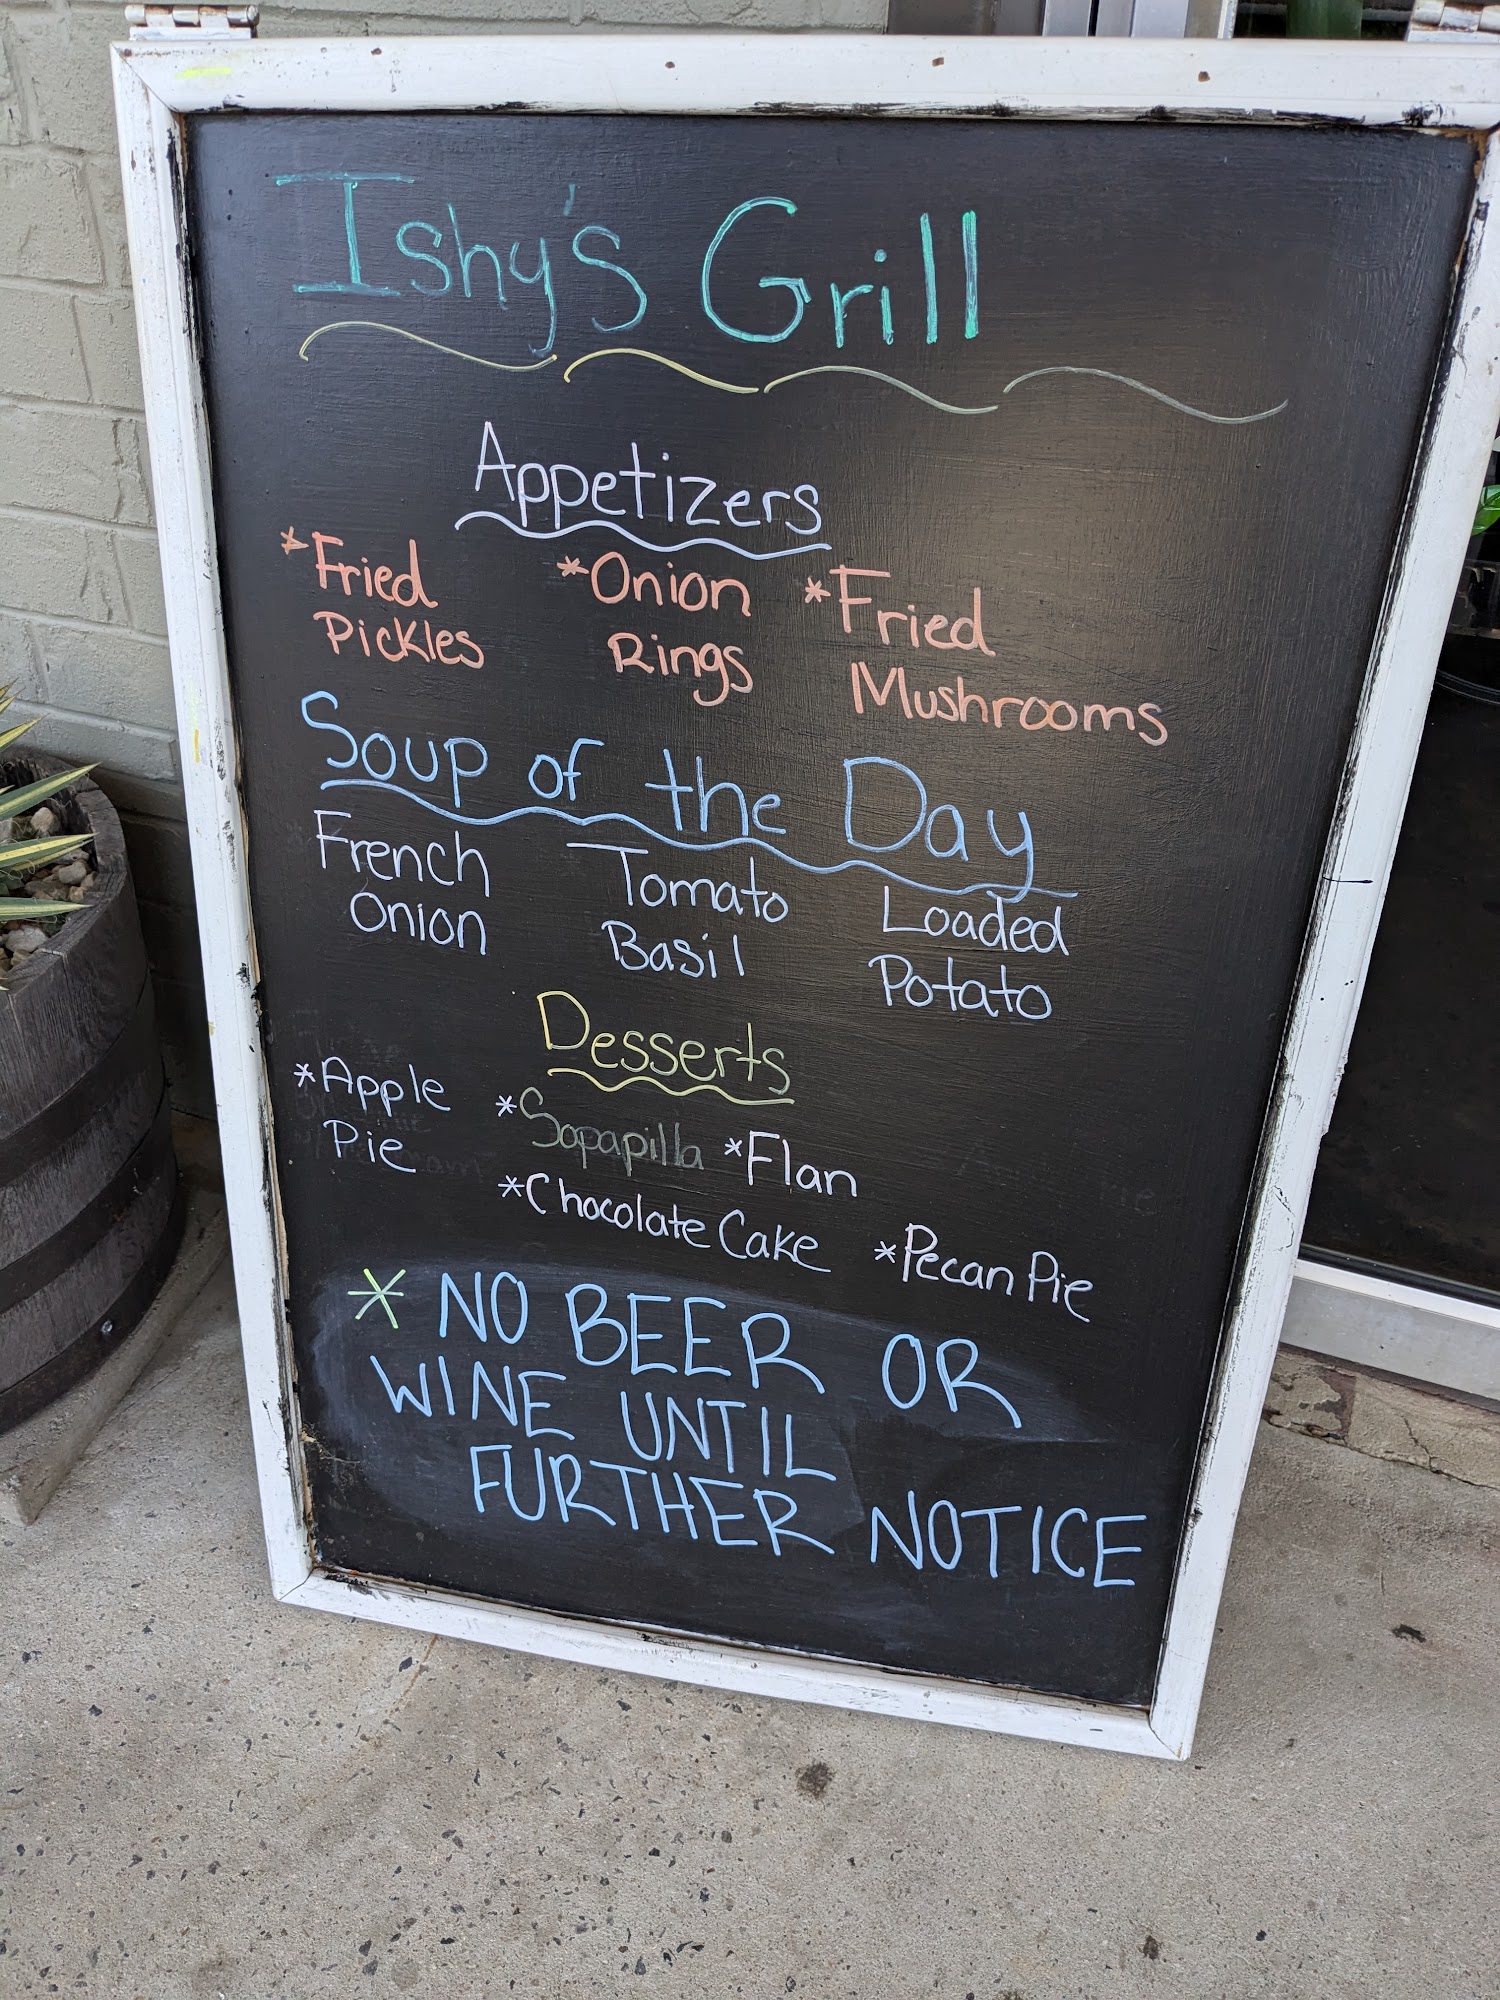 Ishy's Grill
Appetizers
*Fried *Onion *Fried
Pickles Rings Mushrooms
Soup of the Day
French Tomato Loaded
Onion Basil Potato
Desserts
*Apple *Sopapilla *Flan
Pie
*Chocolate Cake *Pecan Pie
* NO BEER OR
WINE UNTIL
FURTHER NOTICE